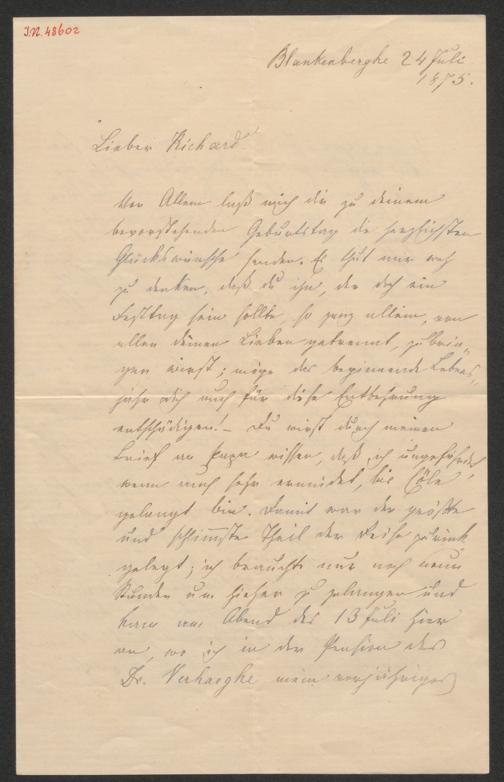 I.N. 48602
Blankenberghe 24 Juli
1875.
Lieber Richard
Vor Allem laß mich dir zu deinem
bevorstehenden Geburtstag die herzlichsten
Glückswünsche senden. Es thut mir weh
zu denken, daß du ihn, der doch ein
Festtag sein sollte, so ganz allein, von
allen deinen Lieben getrennt, zubrin„
gen wirst; möge das beginnende Lebens„
jahr dich auch für diese Entbehrung
entschädigen! – Du wirst durch meinen
Brief an Papa wissen, daß ich ungefährdet,
wenn auch sehr ermüdet, bis Cöln
gelangt bin. Damit war der größte
und schlimmste Theil der Reise zurück
gelegt; ich brauchte nur noch neun
Stunden um hieher zu gelangen und
kam am Abend des 13 Juli hier
an, wo ich in der Pension des
Dr. Verhaeghe mein vorjähriges